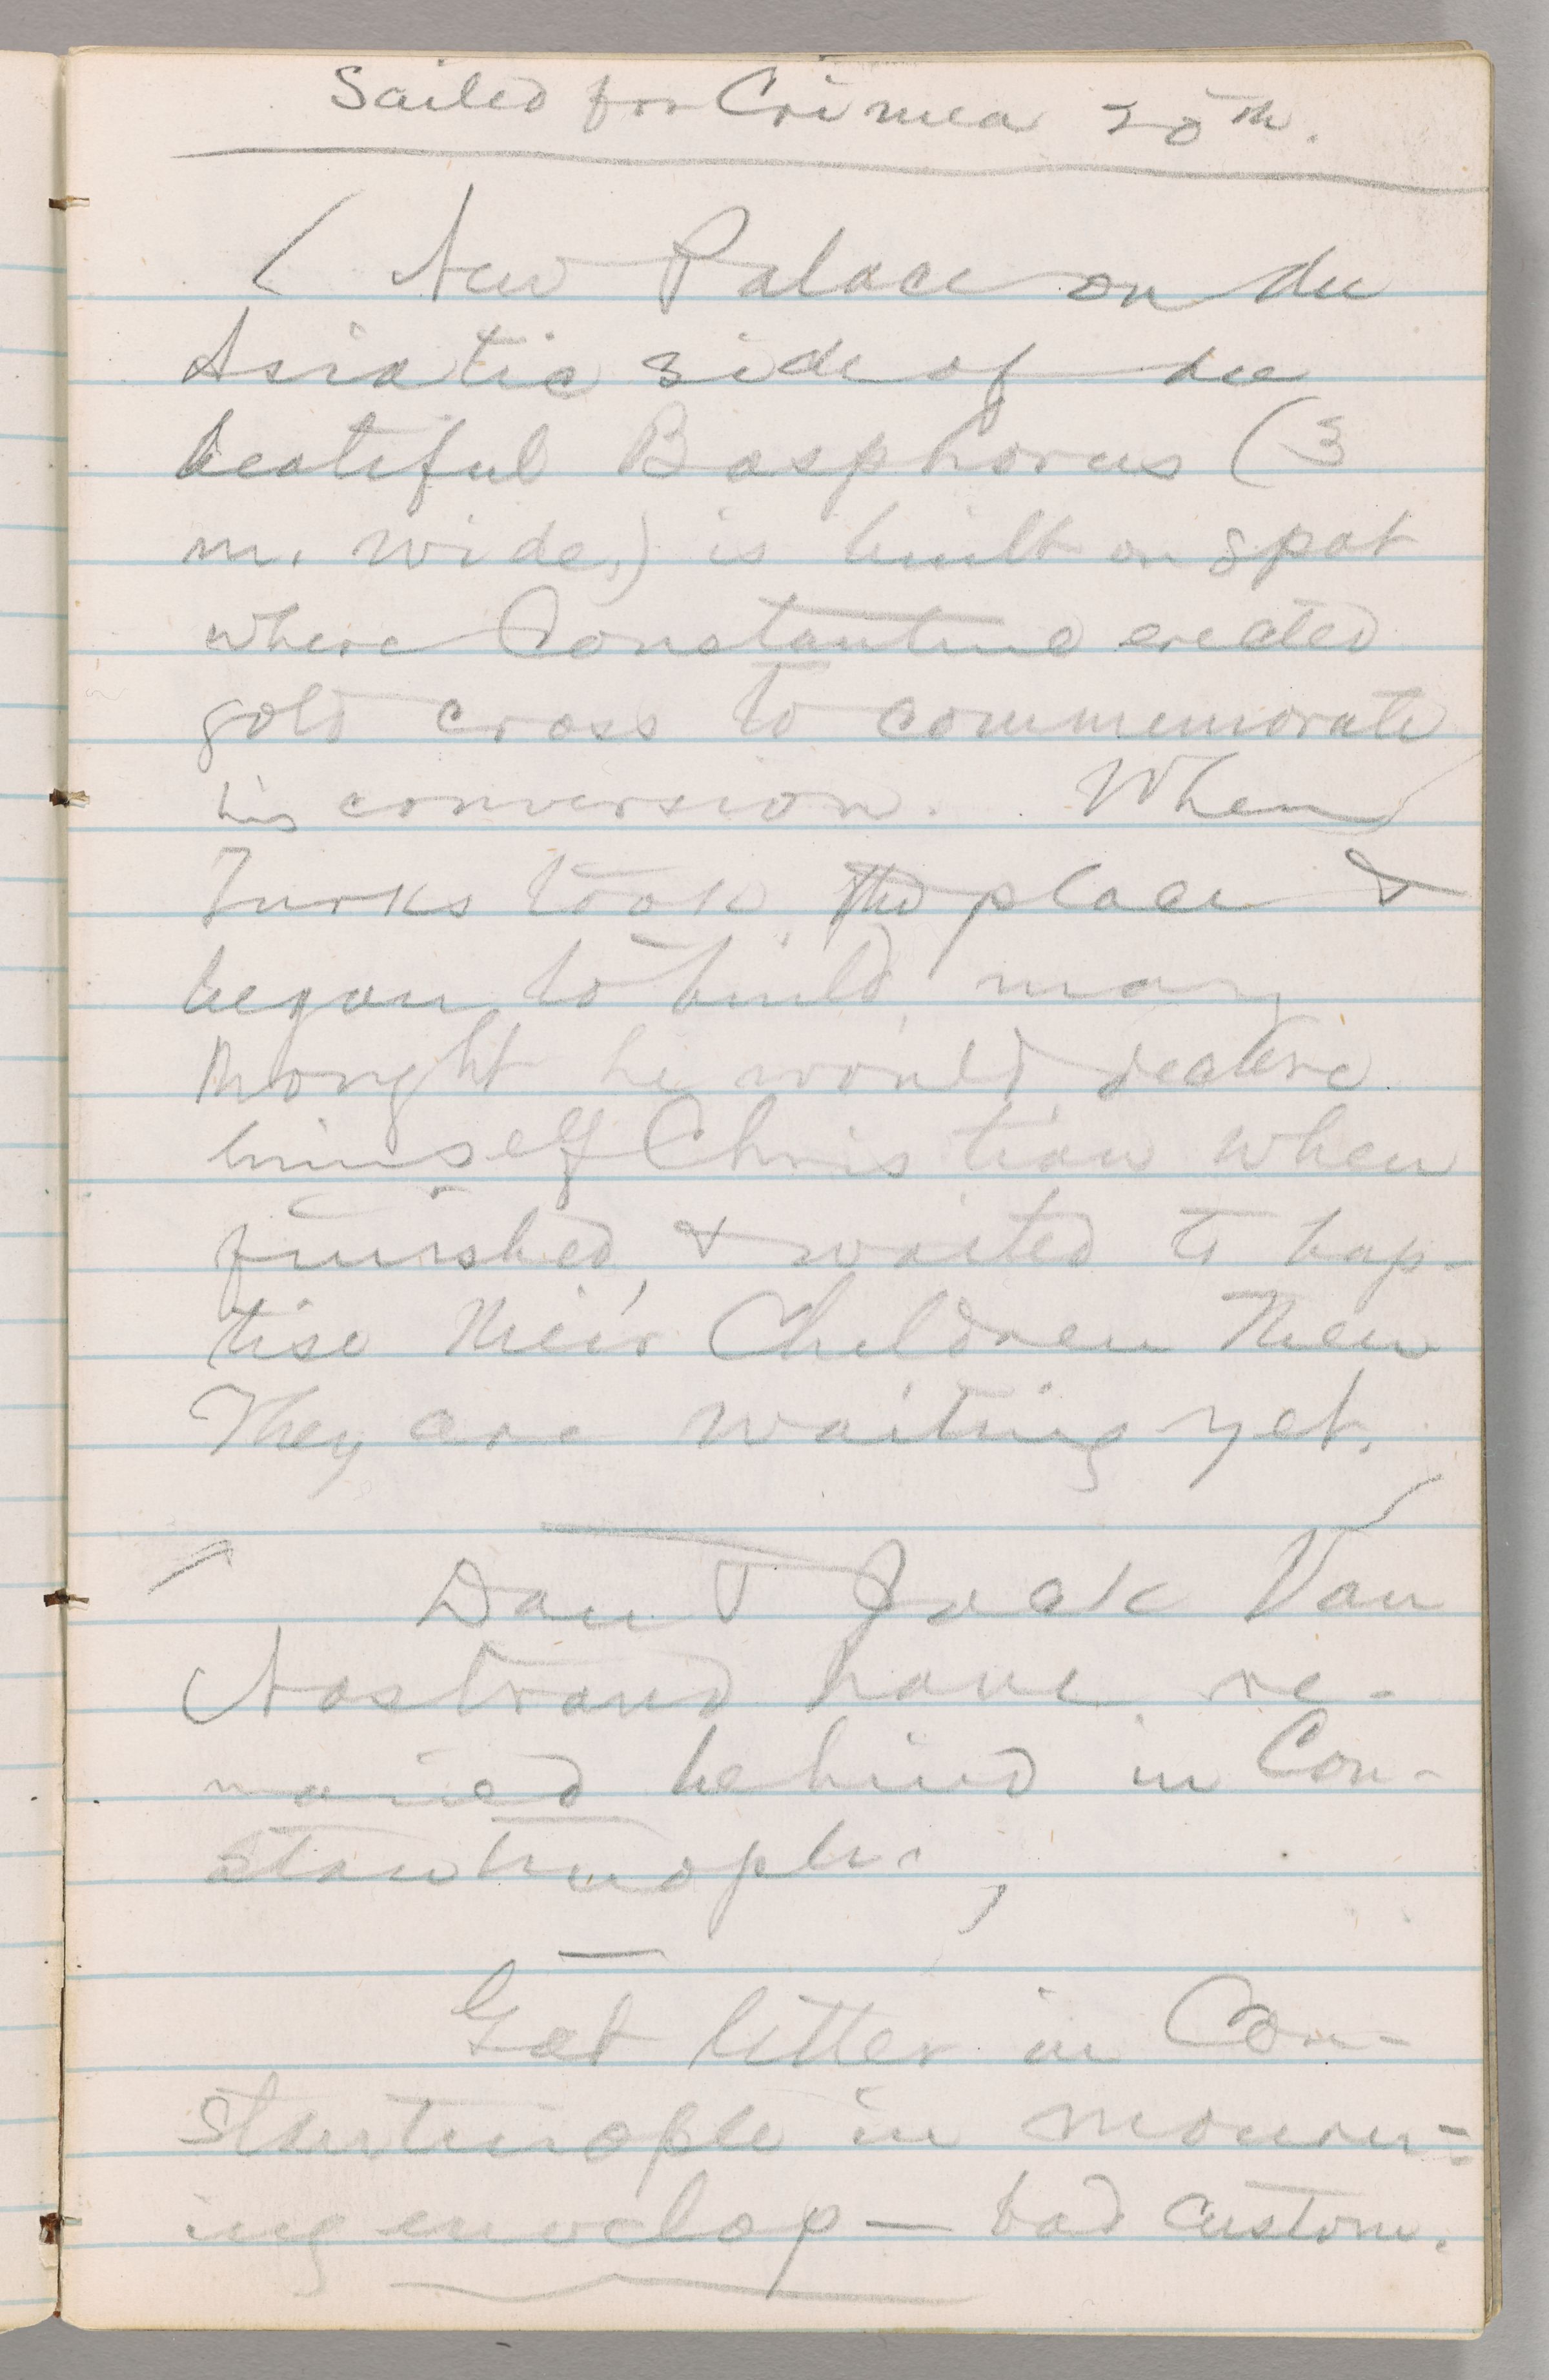 Sailed for Crimea 20th.
( New Palace on the
Asiatic side of the
beatiful Bosphorus (3
m. wide,) is built on spot
where Constantine erected
gold cross to commemorate
his conversion. When
Turks took the place &
began to build, many
thought he would declare
himself Christian when
finished, & waited to bap-
tise their Children then
They are waiting yet.
Dan & Jack Van
Nostrand have re-
mained behind in Con-
stantinople.
Got letter in Con-
stantinople in mourn-
ing envelop — bad custom.